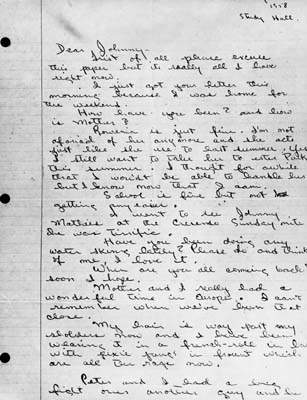 1958
Study Hall
Dear Johnny -
First of all please excuse
this paper but its really all I have
right now.
I just got your letter this
morning because I was home for
the weekend.
How have you been? and how
is Mother?
is just fine. I'm not
afraid of her anymore and she acts
just like she use to last summer. Yes
I still want to take her to
this summer. I thought for awhile
that I wouldn't be able to handle her
but I know now that I can.
School is fine but not
getting any easier.
I went to see Johnny
Mathies at the Crescendo Sunday nite
He was Terrific
Have you been doing any
water skiing lately? Please do and think
of me. I love it.
When are you all coming back?
soon I hope.
Mother and I really had a
wonderful time in Europe. I can't
remember when we've been that
close.
My hair is way past my
sholders now and I have been
wearing it in a french-role in back
with pixie bangs in front which
are all the rage now.
Peter and I had a big
fight over another guy and he